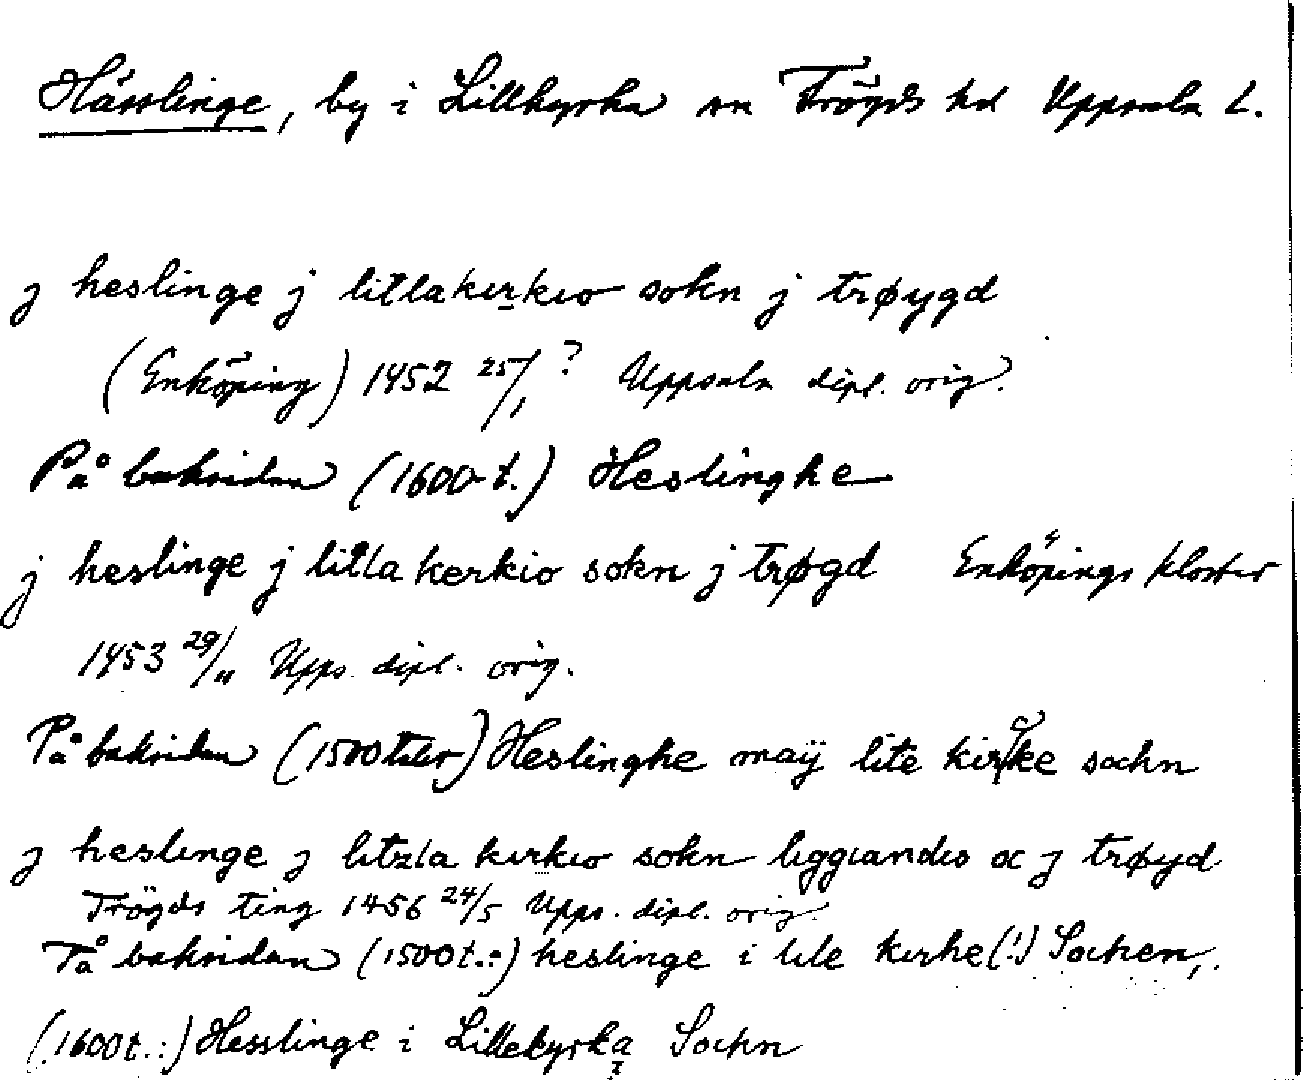 Hässlinge, by i Lillkyrka sn Trögds hd Uppsala L.
j heslinge j litlakirkio sokn j trøygd
(Enköping) 1452 25/1 ? Uppsala dipl. orig.
På baksidan (1600-t.) Heslinghe
j heslinge j litla kerkio sokn j trøgd Enköpings kloster
1453 29/11 Upps. dipl. orig.
På baksidan (1500talet) Heslinghe maÿ lite kirke sochn
j heslinge j litzla kirkio sokn liggiandis oc j trøyd
Trögds ting 1456 24/5 Upps. dipl. orig.
På baksidan (1500t.:) heslinge i lile kirhe(!) Sochen,.
(1600t.:) Hesslinge i Lillekyrka Sochn